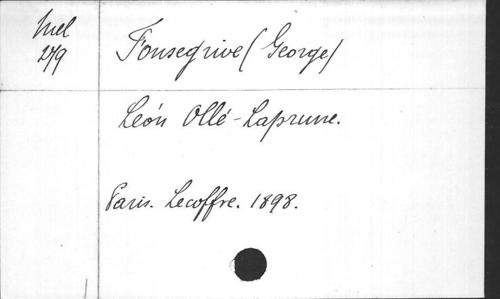 Mel
279
Fonsegrive (George)
Léon Ollé-Laprune.
Paris. Lecoffre. 1898.